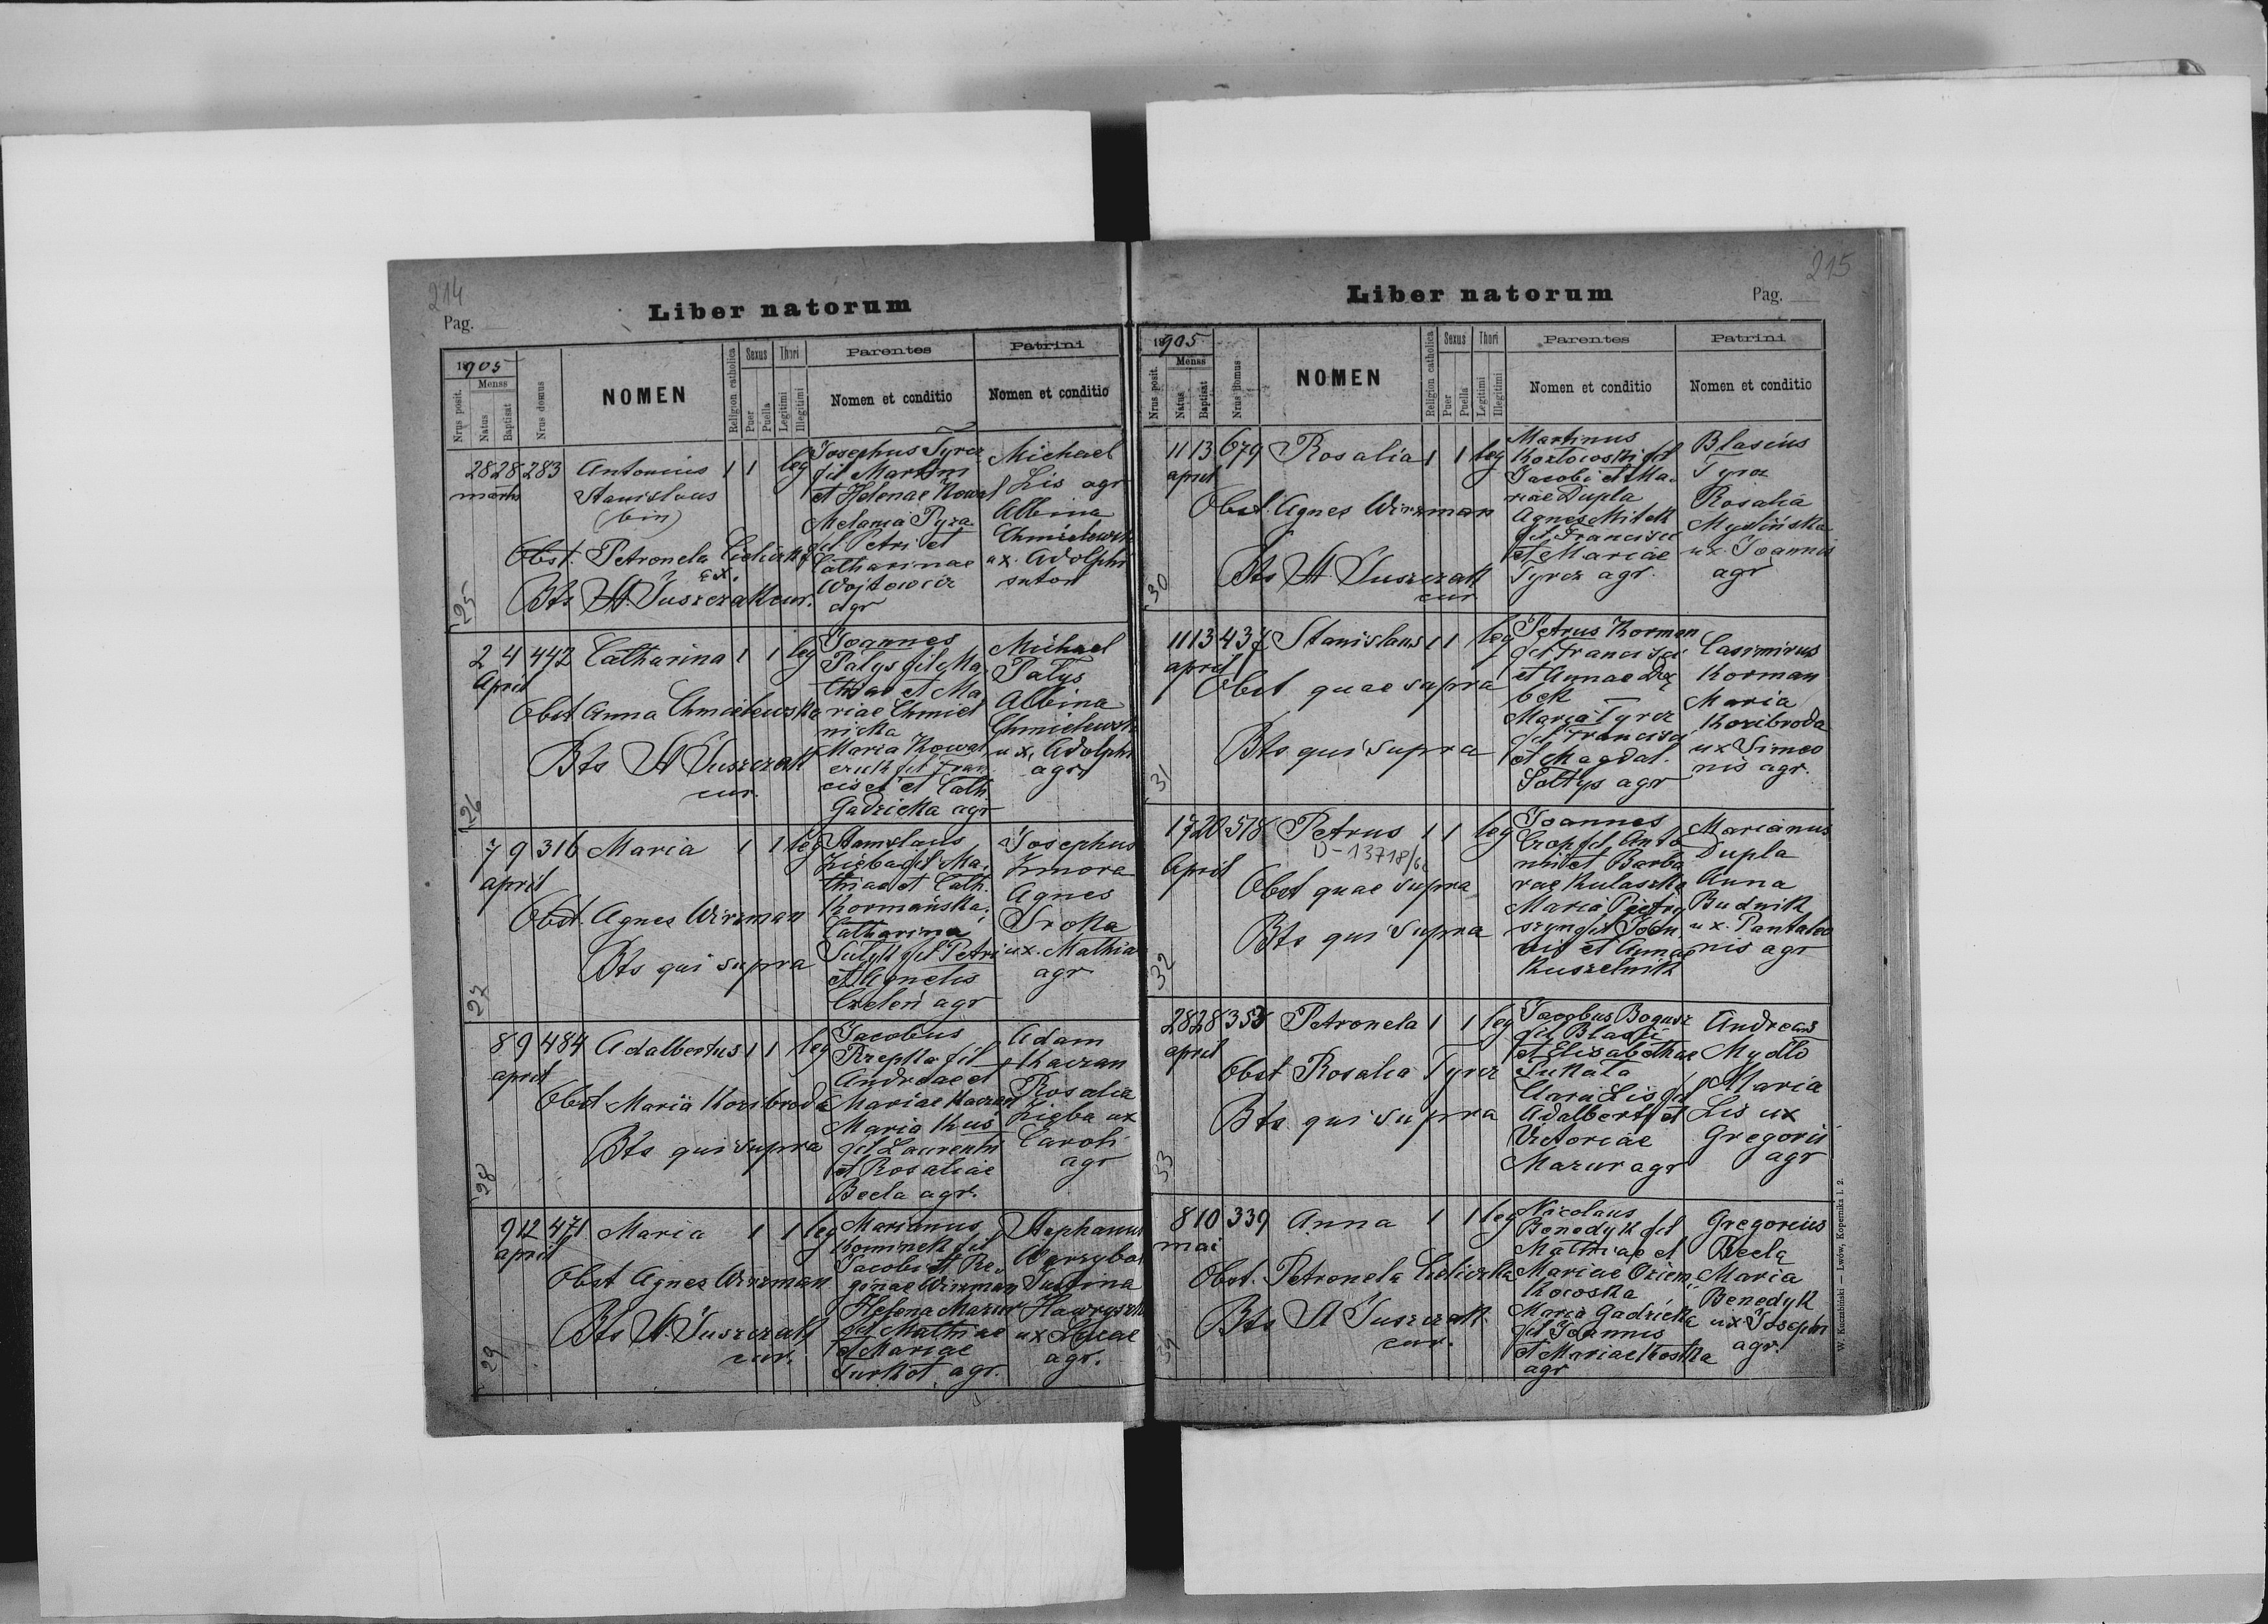 214
Pag.
Liber natorum
1905
Nrus posit.
Menss
Natus
Baptisat
Nrus domus
NOMEN
Religion catholica
Sexus
Puer
Puella
Thori
Legitimi
Illegitimi
Parentes
Nomen et conditio
Patrini
Nomen et conditio
25
28 28 283 Antonius 1 1 leg
martii Stanislaus
(bin)
Obst. Petronela
ex.
Bts St. Juszczak cur.
Josephus Tyrcz
fil Martini
et Helenae Kowal
Melania Pyza
fil Petri et
Catharinae
Wojtowicz
agr
Michael
Lis agr
Albina
Chmielewsk
ux. Adolphi
sutor
26
2 4 442 Catharina 1 1 leg
April
Obst Anna Chmielewska
Bts St Juszczak
cur.
Joannes
Palys fil Ma
thiae et Ma
riae Chmiel
nicka
Maria Kowal
czuk fil Fran
cisci et Cath
Gadzicka agr
Michael
Palys
Albina
Chmielewsk
ux. Adolphi
agr
27
7 9 316 Maria 1 1 leg
april
Obst. Agnes Wirzman
Bts qui supra
Stanislaus
Zieba fil Ma
thiae et Cath.
Kormańska
Catharina
Sulyk fil Petri
et Agnetis
Czeleń agr
Josephus
Zmora
Agnes
Sroka
ux. Mathia
agr
28
8 9 484 Adalbertus 1 1 leg
april
Obst Maria Kozibroda
Bts qui supra
Jacobus
Rzepka fil
Andreae et
Mariae Kaczan
Maria Kuś
fil Laurentii
et Rosaliae
Becla agr.
Adam
Kaczan
Rosalia
Zięba ux
Caroli
agr
29
9 12 471 Maria 1 1 leg
april
Obst Agnes Wirzman
Bts St. Juszczak
cur.
Marianus
Kominek fil
Jacobi et Re
ginae Wirzman
Helena Mazur
fil Mathiae
et Mariae
Surkot agr.
Stephanus
Justina
ux Lucae
agr.
215
Liber natorum
Pag.
1905
Nrus posit.
Menss
Natus
Baptisat
Nrus domus
NOMEN
Religion catholica
Sexus
Puer
Puella
Thori
Legitimi
Illegitimi
Parentes
Nomen et conditio
Patrini
Nomen et conditio
30
11 13 679 Rosalia 1 1 leg
april
Obst. Agnes Wirzman
Bts St Juszczak
cur
Martinus
Kozlowski fil
Jacobi et Ma
riae Dupla
Agnes Mitek
fil Francisci
et Mariae
Tyrcz agr.
Blasius
Tyrcz
Rosalia
Myslińska
ux. Joannis
agr
31
11 13 437 Stanislaus 1 1 leg
april
Obst quae supra
Bts qui supra
Petrus Korman
fil Francisci
et Annae Dą
bek
Maria Tyrcz
fil Francisci
et Magdal.
Soltys agr
Casimirus
Korman
Maria
Kozibroda
ux Simeo
nis agr.
32
17 20 578 Petrus 1 1 leg
D-13718/
April
Obst quae supra
Bts qui supra
Joannes
Czop fil Anto
nii et Barba
rae Kulaszka
Maria Pietry
szyn fil Joan
nis et Annae
Kuszelnik
Marianus
Dupla
Anna
Budnik
ux. Pantaleo
nis agr
33
28 28 353 Petronela 1 1 leg
april
Obst Rosalia Tyrcz
Bts qui supra
Jacobus Bogusz
fil Blasii
et Elisabethae
Sukata
Maria Lis fil
Adalberti et
Victoriae
Mazur agr
Andreas
Mydlo
Maria
Lis ux
Gregorii
agr
34
8 10 339 Anna 1 1 leg
mai
Obst. Petronela
Bts St Juszczak
cur.
Nicolaus
Benedyk fil
Mathiae et
Mariae Oziem
kowska
Maria Gadzicka
fil Joannis
et Mariae Kostka
agr
Gregorius
Becla
Maria
Benedyk
ux Josephi
agr.
W. Kuczabiński — Lwów, Kopernika l. 2.